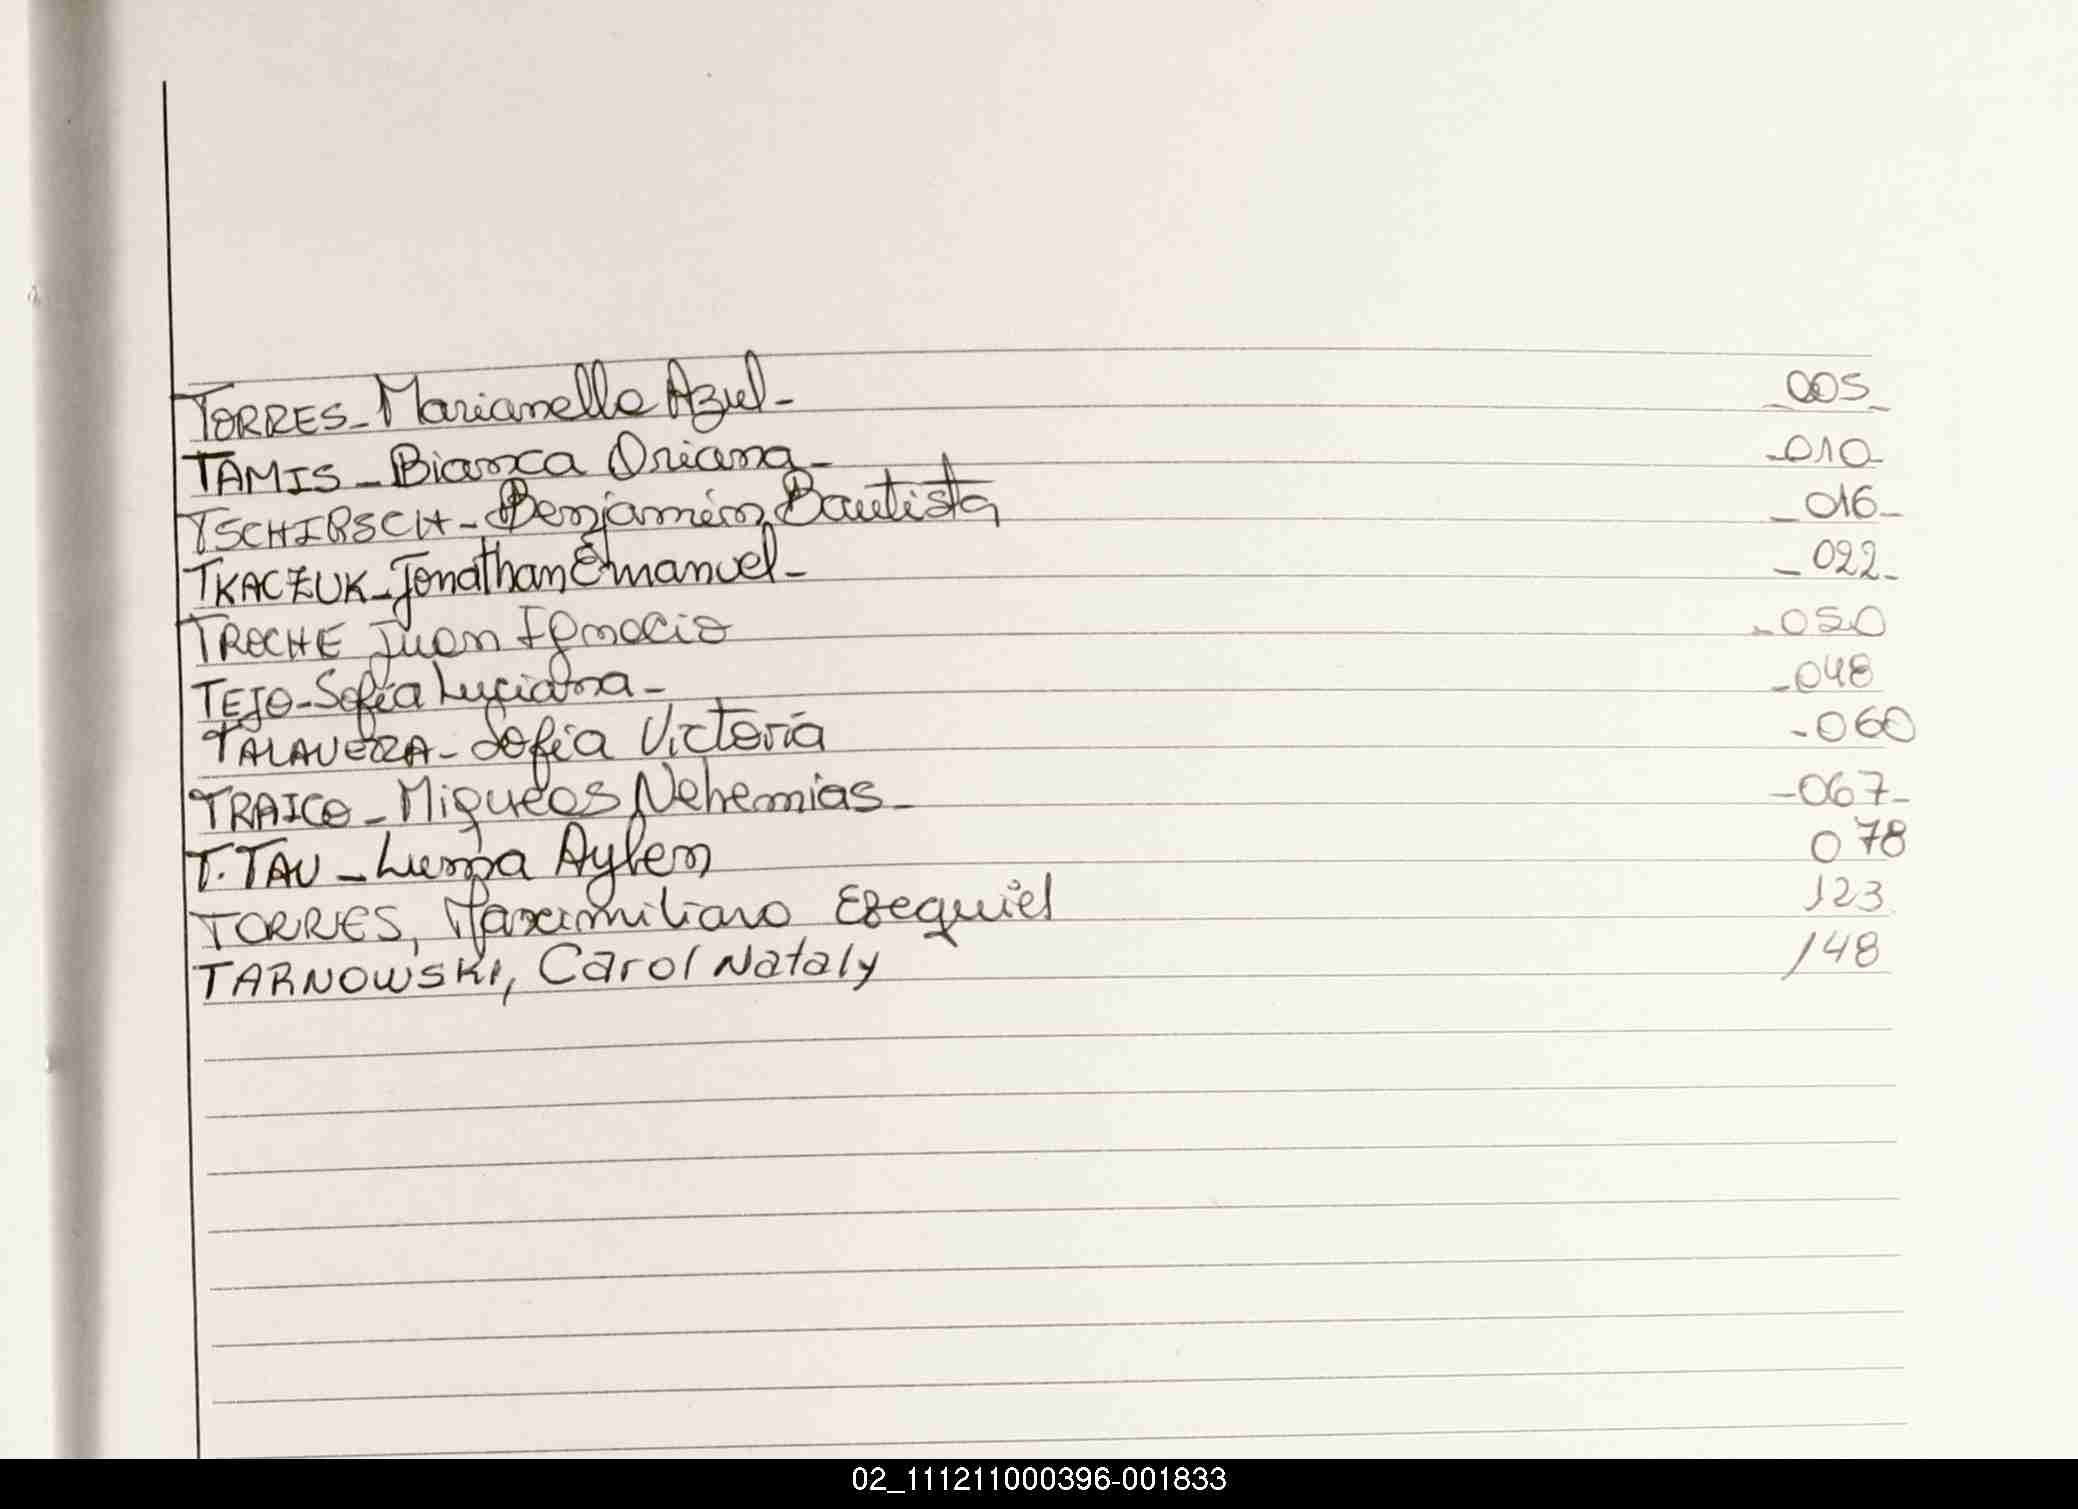 TORRES_ Marianella Azul_ _005_
TAMIS_ Bianca Oriana_ _010_
TSCHIRSCH_ Benjamín Bautista _016_
TKACZUK_ Jonathan Emanuel_ _022_
TROCHE Juan Ignacio _050
TEJO_ Sofía Luciana_ _048
TALAVERA_ Sofía Victoria _060
TRAICO_ Miqueas Nehemias_ _067_
T.TAU_ Luma Aylen 078
TORRES, Maximiliano Ezequiel 123
TARNOWSKI, Carol Nataly 148
02_111211000396-001833